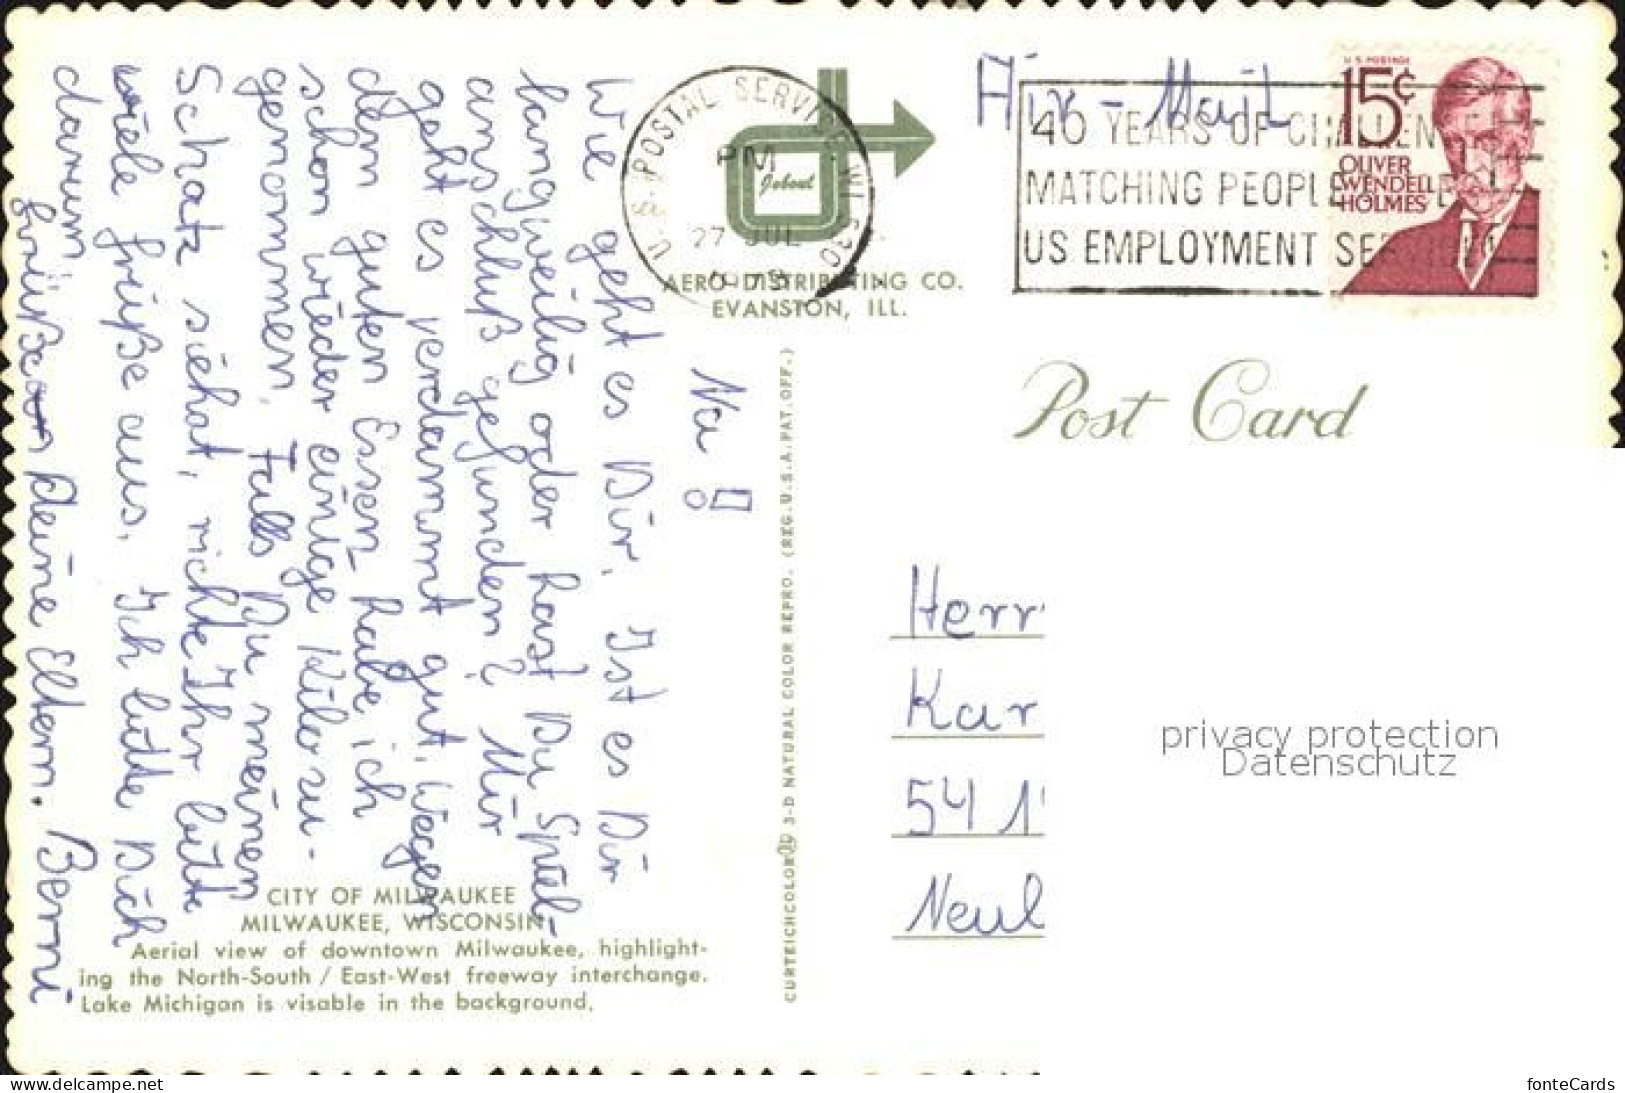 Air-Mail
U.S. POSTAGE
15¢
OLIVER
WENDELL
HOLMES
U.S. POSTAL SERVICE, WI 530
PM
27 JUL
40 YEARS OF CHALLEN
MATCHING PEOPLE
US EMPLOYMENT SE
AERO DISTRIBUTING CO.
EVANSTON, ILL.
Post Card
Na !
Wie geht es Dir. Ist es Dir
langweilig oder hast Du Spiel-
anschluß gefunden? Mir
geht es verdammt gut. Wegen
dem guten Essen habe ich
schon wieder einige Kilo zu-
genommen. Falls Du meinen
Schatz siehst, richte Ihr bitte
viele Grüße aus. Ich bitte Dich
darum!
Grüße an Deine Eltern. Berni
CITY OF MILWAUKEE
MILWAUKEE, WISCONSIN
Aerial view of downtown Milwaukee, highlight-
ing the North-South / East-West freeway interchange.
Lake Michigan is visable in the background.
CURTEICHCOLOR® 3-D NATURAL COLOR REPRO. (REG. U.S.A. PAT. OFF.)
Herr
Kar
541
Neul
privacy protection
Datenschutz
www.delcampe.net
fonteCards